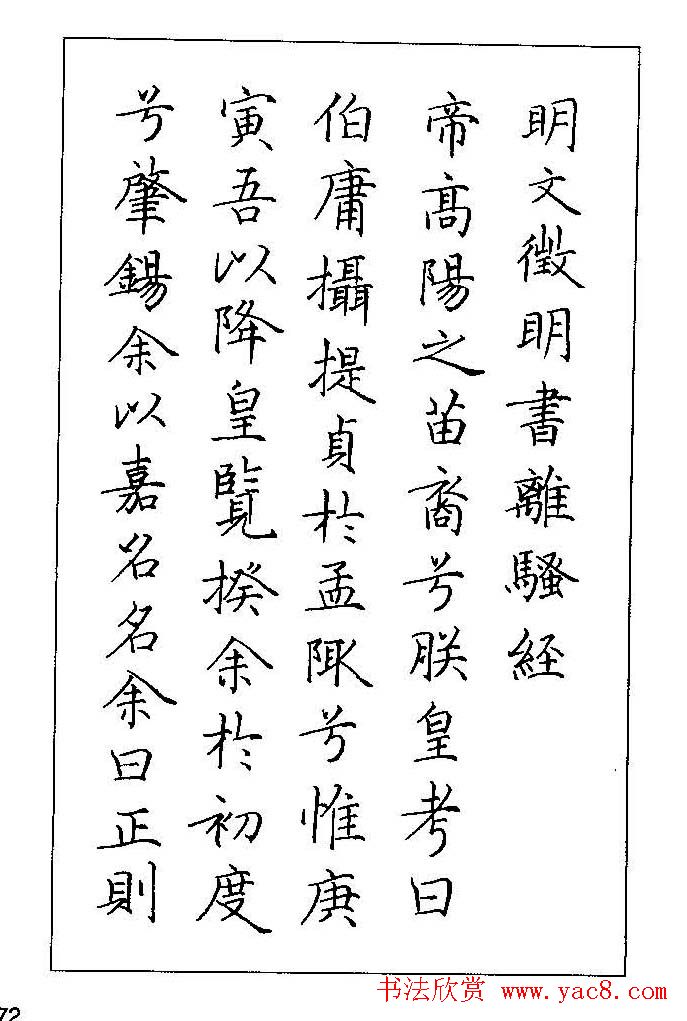 明文徵明書離騷経
帝高陽之苗裔兮朕皇考曰
伯庸攝提貞於孟陬兮惟庚
寅吾以降皇覽揆余於初度
兮肇錫余以嘉名名余曰正則
书法欣赏 www.yac8.com
72